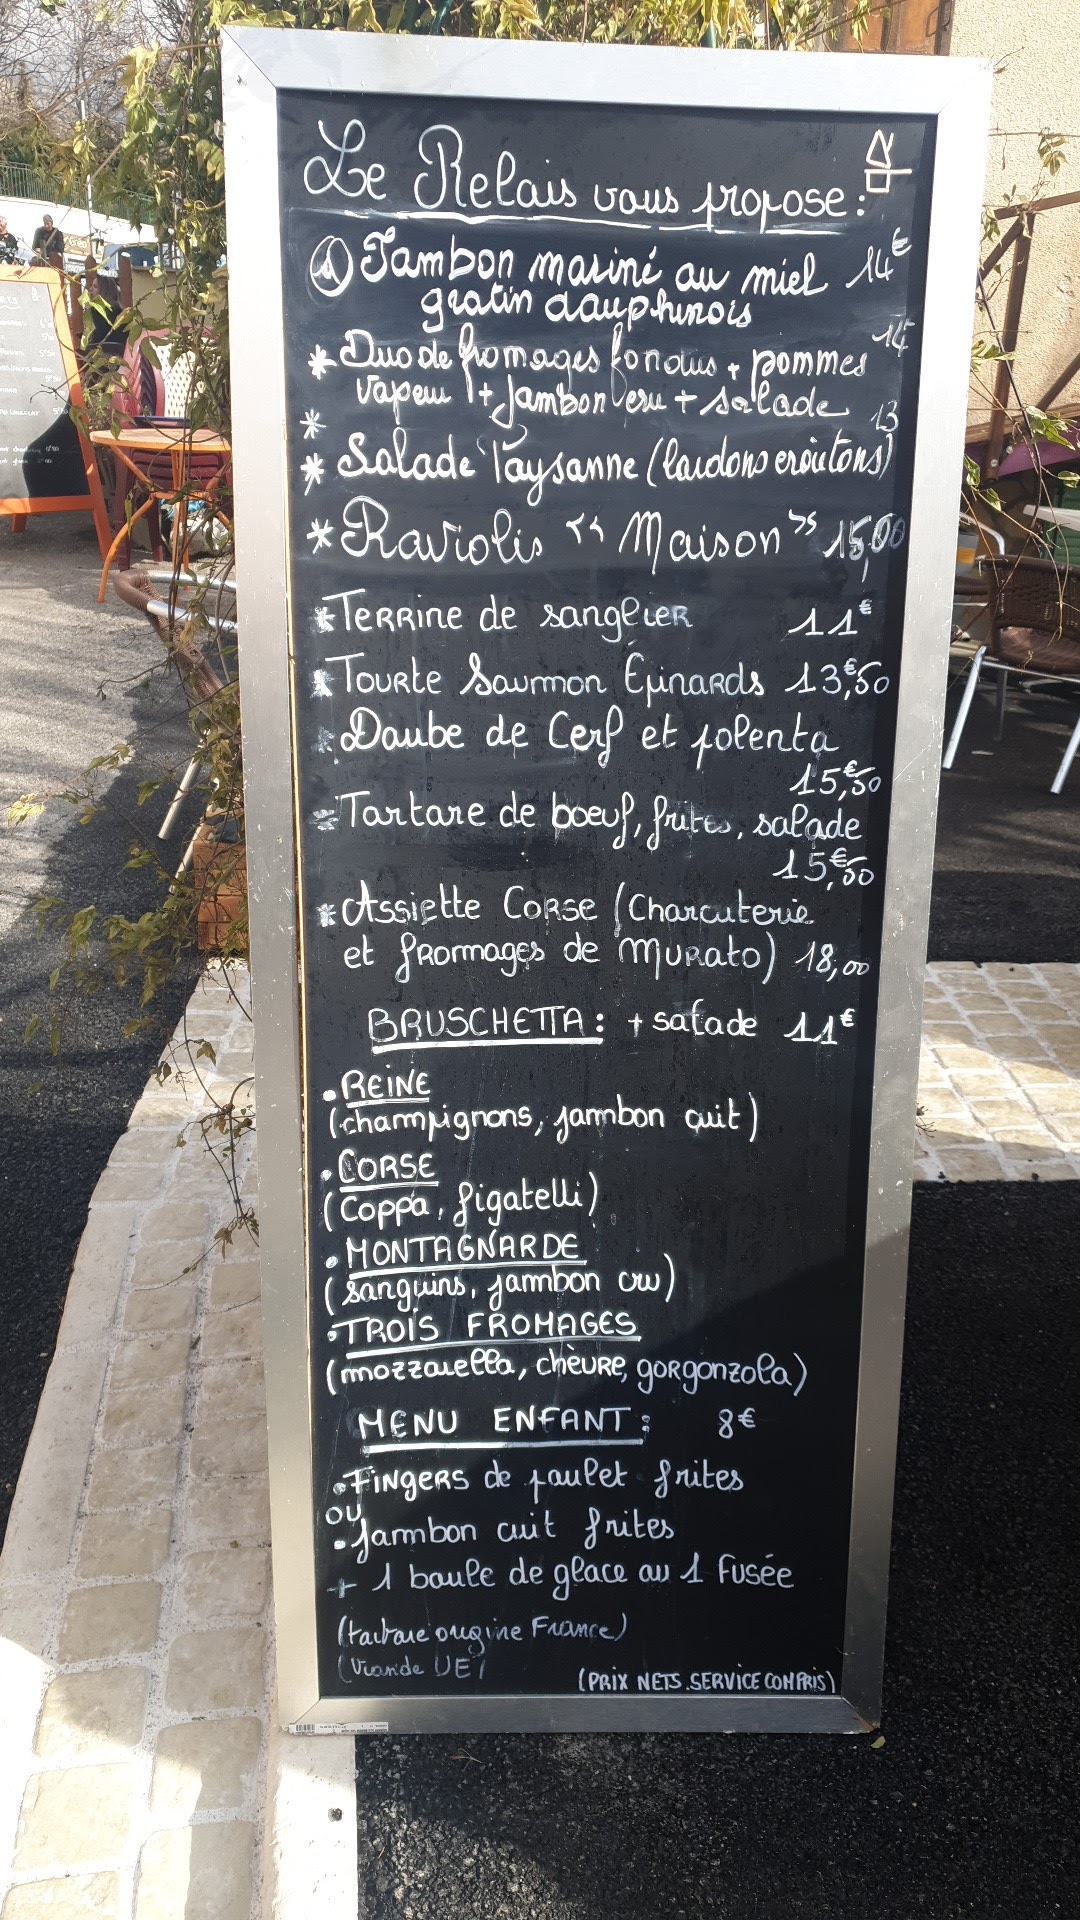 Le Relais vous propose :
Jambon mariné au miel 14€
gratin dauphinois
* Duo de fromages fondus + pommes 14
vapeur + jambon cru + salade
*
13
* Salade Paysanne (lardons croûtons)
* Raviolis << Maison >> 15,00
* TERRINE de sanglier 11€
* TOURTE Saumon EpinARds 13,€50
* Daube de Cerf et polenta
15,€50
Tartare de boeuf, frites, salade
15,€50
* Assiette CORSE (Charcuterie
et fromages de MURATO) 18,00
BRUSCHETTA : + salade 11€
• REINE
(champignons, jambon cuit)
• CORSE
(coppa, figatelli)
• MONTAGNARDE
(sanguins, jambon cru)
• TROIS FROMAGES
(mozzarella, chèvre, gorgonzola)
MENU ENFANT : 8€
• FINGERS de poulet frites
OU
• jambon cuit frites
+ 1 boule de glace ou 1 fusée
(tartare origine France)
(Viande UE)
(PRIX NETS SERVICE COMPRIS)